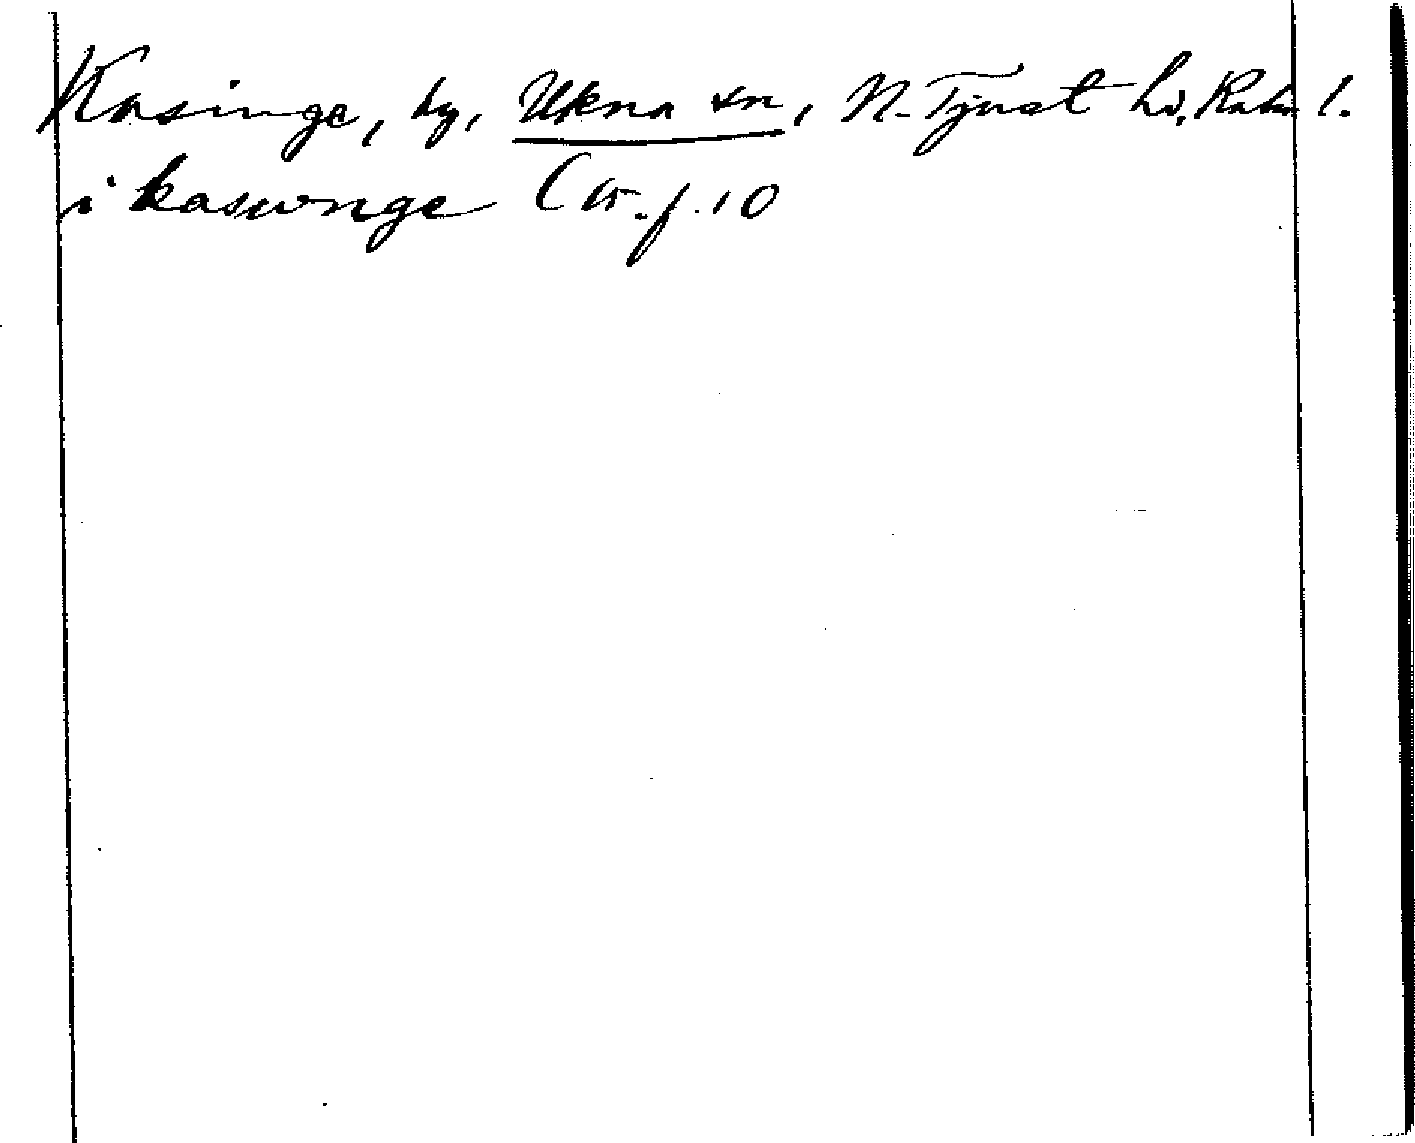 Kasinge, by, Ukna sn, N. Tjust hd, Kalm l.
i kaswnge